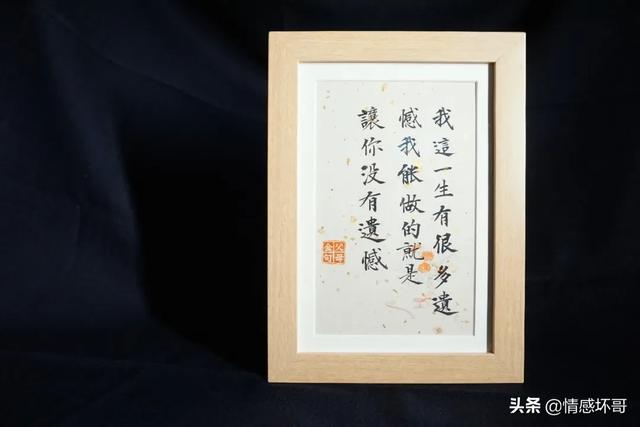 我這一生有很多遺
憾我能做的就是
讓你没有遺憾
父母
金句
头条 @情感坏哥